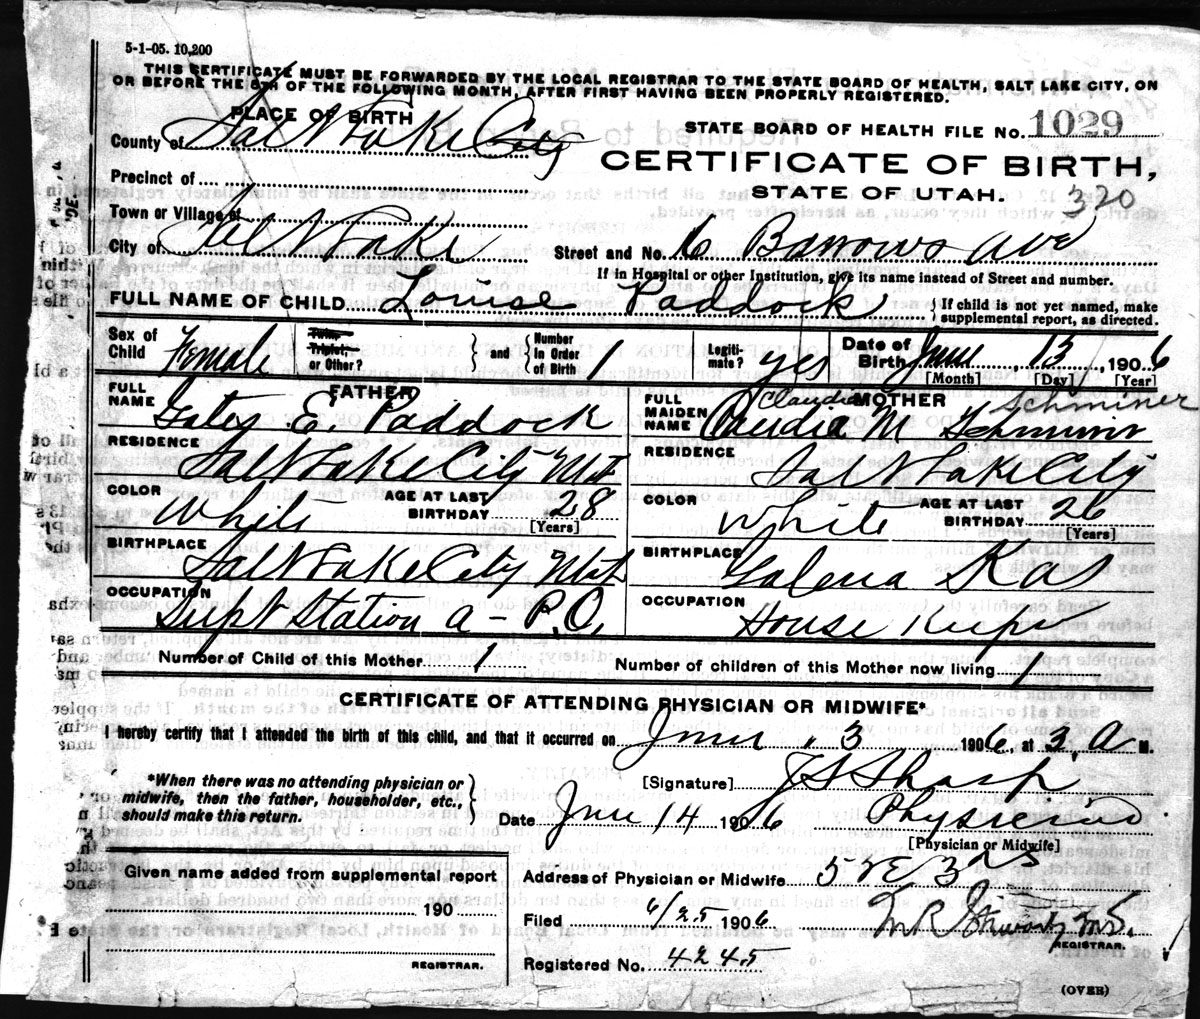 5-1-05. 10,200
THIS CERTIFICATE MUST BE FORWARDED BY THE LOCAL REGISTRAR TO THE STATE BOARD OF HEALTH, SALT LAKE CITY, ON
OR BEFORE THE 5TH OF THE FOLLOWING MONTH, AFTER FIRST HAVING BEEN PROPERLY REGISTERED.
PLACE OF BIRTH
STATE BOARD OF HEALTH FILE NO. 1029
County of Salt Lake City
CERTIFICATE OF BIRTH,
STATE OF UTAH. 320
Precinct of
Town or Village of
City of Salt Lake Street and No. 6 Barrows Ave
If in Hospital or other Institution, give its name instead of Street and number.
FULL NAME OF CHILD Louise Paddock {If child is not yet named, make supplemental report, as directed.
Sex of Child Female Twin, Triplet, or Other? } and { Number in Order of Birth 1 Legitimate? yes Date of Birth June 13, 1906
[Month] [Day] [Year]
FATHER
FULL NAME Gates E. Paddock
RESIDENCE
Salt Lake City Ut
COLOR White AGE AT LAST BIRTHDAY 28
[Years]
BIRTHPLACE
Salt Lake City Utah
OCCUPATION
Supt Station a - P.O.
MOTHER
Claudia Schminer
FULL MAIDEN NAME Claudia M
RESIDENCE
Salt Lake City
COLOR White AGE AT LAST BIRTHDAY 26
[Years]
BIRTHPLACE
Galena Kas
OCCUPATION
House Keeper
Number of Child of this Mother 1 Number of children of this Mother now living 1
CERTIFICATE OF ATTENDING PHYSICIAN OR MIDWIFE*
I hereby certify that I attended the birth of this child, and that it occurred on June 13 1906, at 3. A M.
*When there was no attending physician or midwife, then the father, householder, etc., should make this return. }
[Signature] Sharp
Date June 14 1906 Physician
[Physician or Midwife]
Given name added from supplemental report
190
REGISTRAR.
Address of Physician or Midwife 52 E 3rd S
Filed 6/25 1906 M.D.
REGISTRAR.
Registered No. 4245
(OVER)